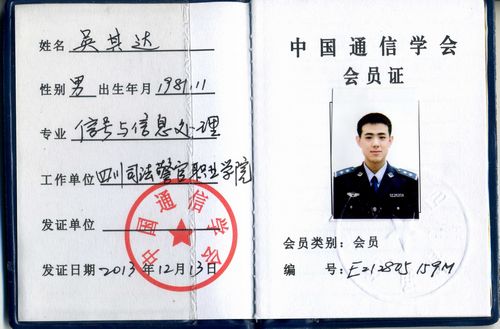 姓名 吴其达
性别 男 出生年月 1981.11
专业 信号与信息处理
工作单位 四川司法警官职业学院
发证单位
中国通信学会
发证日期 2013年12月13日
中国通信学会
会员证
会员类别：会员
编 号：E212805159M